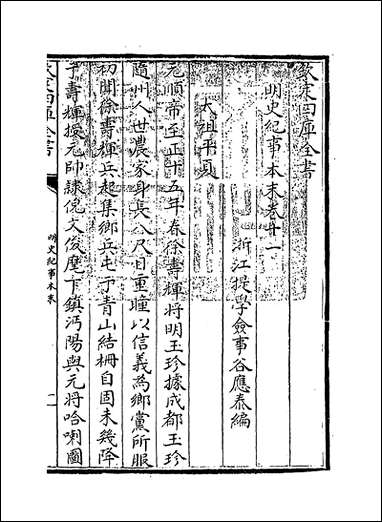 欽定四庫全書
明史紀事本末卷十一
浙江提學僉事谷應泰編
太祖平夏
元順帝至正十五年春徐壽輝將明玉珍據成都玉珍
隨州人世農家身長八尺目重瞳以信義為鄉黨所服
初聞徐壽輝兵起集鄉兵屯于青山結柵自固未幾降
于壽輝授元帥隸倪文俊麾下鎮沔陽與元將哈喇圖
欽定四庫全書
明史紀事本末